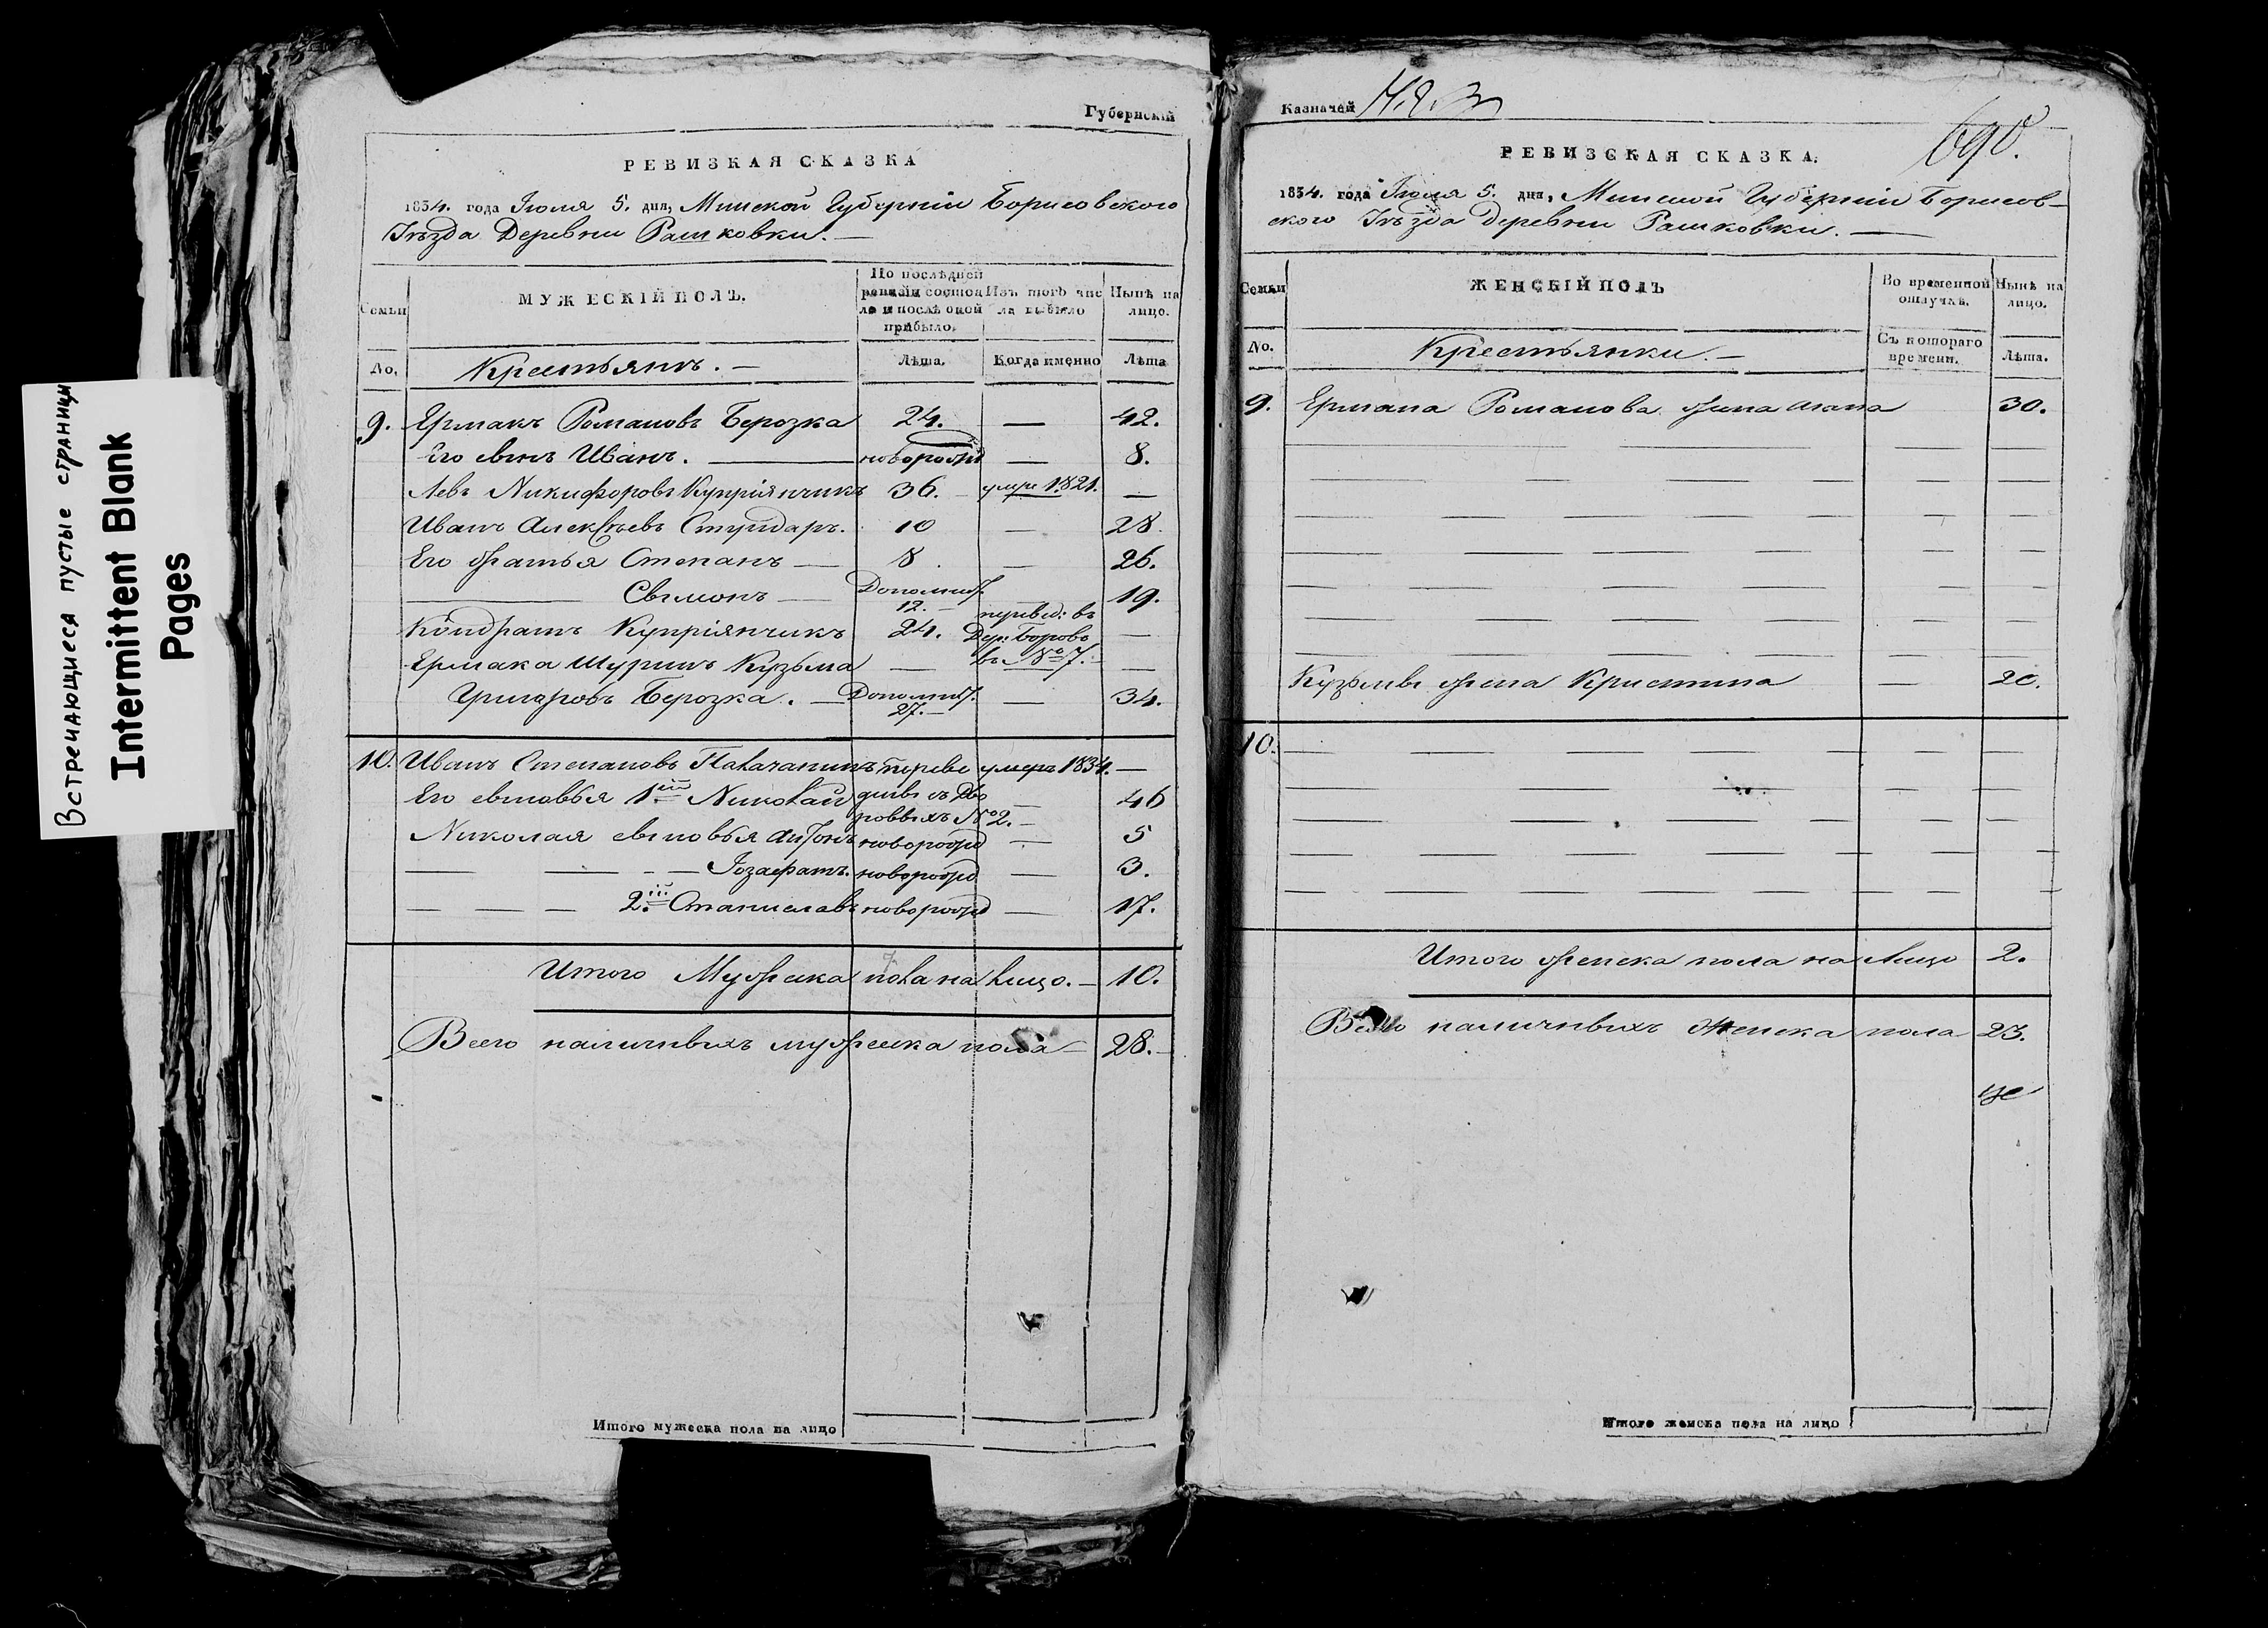 Встречающиеся пустые страницы
Intermittent Blank
Pages
Губернскій
РЕВИЗКАЯ СКАЗКА
1834. года Іюля 5. дня, Минской Губерніи Борисовского
Уѣзда Деревни Рашковки. —
Семьи
МУЖЕСКІЙ ПОЛЪ.
По послѣдней
ревизіи состоя
ло и послѣ оной
прибыло.
Изъ того чис
ла выбыло
Нынѣ на
лицо.
No.
Крестьянъ. —
Лѣта.
Когда именно
Лѣта
9. Ермакъ Романовъ Берозка 24. — 42.
Его сынъ Иванъ. — новорожд — 8.
Левъ Никифоровъ Купріянчикъ 36. — умре 1821. —
Иванъ Алексѣевъ Стундаръ. 10 — 28.
Его братья Степанъ — 8. — 26.
— Сымонъ — Дополнит. 12. — 19.
Кондратъ Купріянчикъ 24. перевед: въ Дер: Боровъ въ №7. —
Ермака Шуринъ Кузьма — —
Берозка. — Дополнит. 27. — — 34.
10. Иванъ Степановъ переве умеръ 1834. —
Его сыновья 1ій Николай дены съ Дво — 46
ровыхъ №2. —
Николая сыновья Антонъ новорожд — 5
— — — Іозафатъ. новорожд — 3.
— — — 2ій Станиславъ новорожд — 17.
Итого Мужеска пола на лицо. — 10.
Всего наличныхъ мужеска пола — 28. —
Итого мужеска пола на лицо
Казначей
690.
РЕВИЗСКАЯ СКАЗКА.
1834. года Іюля 5. дня, Минской Губерніи Борисов-
ского Уѣзда Деревни Рашковки. —
Семьи
ЖЕНСКІЙ ПОЛЪ
Во временной
отлучкѣ.
Нынѣ на
лицо.
No.
Крестьянки. —
Съ котораго
времени.
Лѣта.
9. Романова жена 30.
Кузьмы жена Кристина — 20.
10.
Итого женска пола на лицо 2.
Всего наличныхъ женска пола 23.
Итого женска пола на лицо